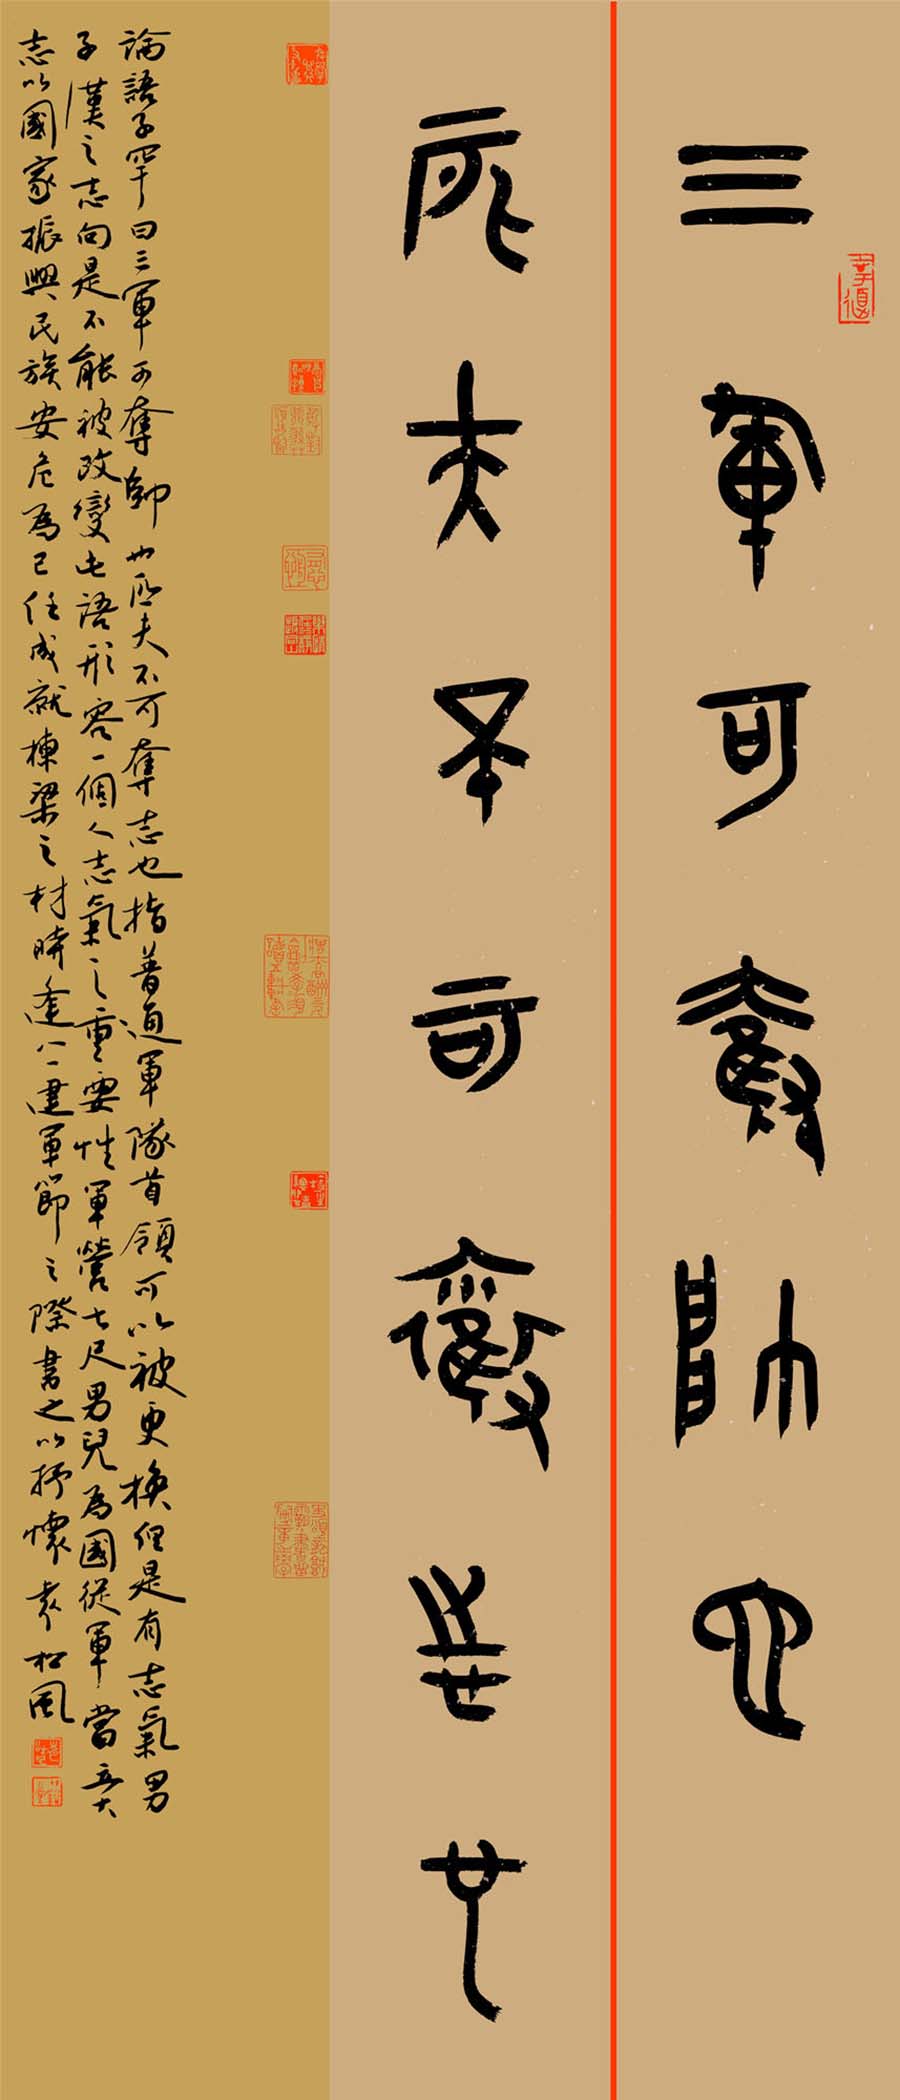 三軍可奪帥也
匹夫不可奪志也
論語子罕曰三軍可奪帥也匹夫不可奪志也指普通軍隊首領可以被更換但是有志氣男
子漢之志向是不能被改變此語形容一個人志氣之重要性軍營七尺男兒為國從軍當立大
志以國家振興民族安危為己任成就棟梁之材時逢八一建軍節之際書之以抒懷袁松風